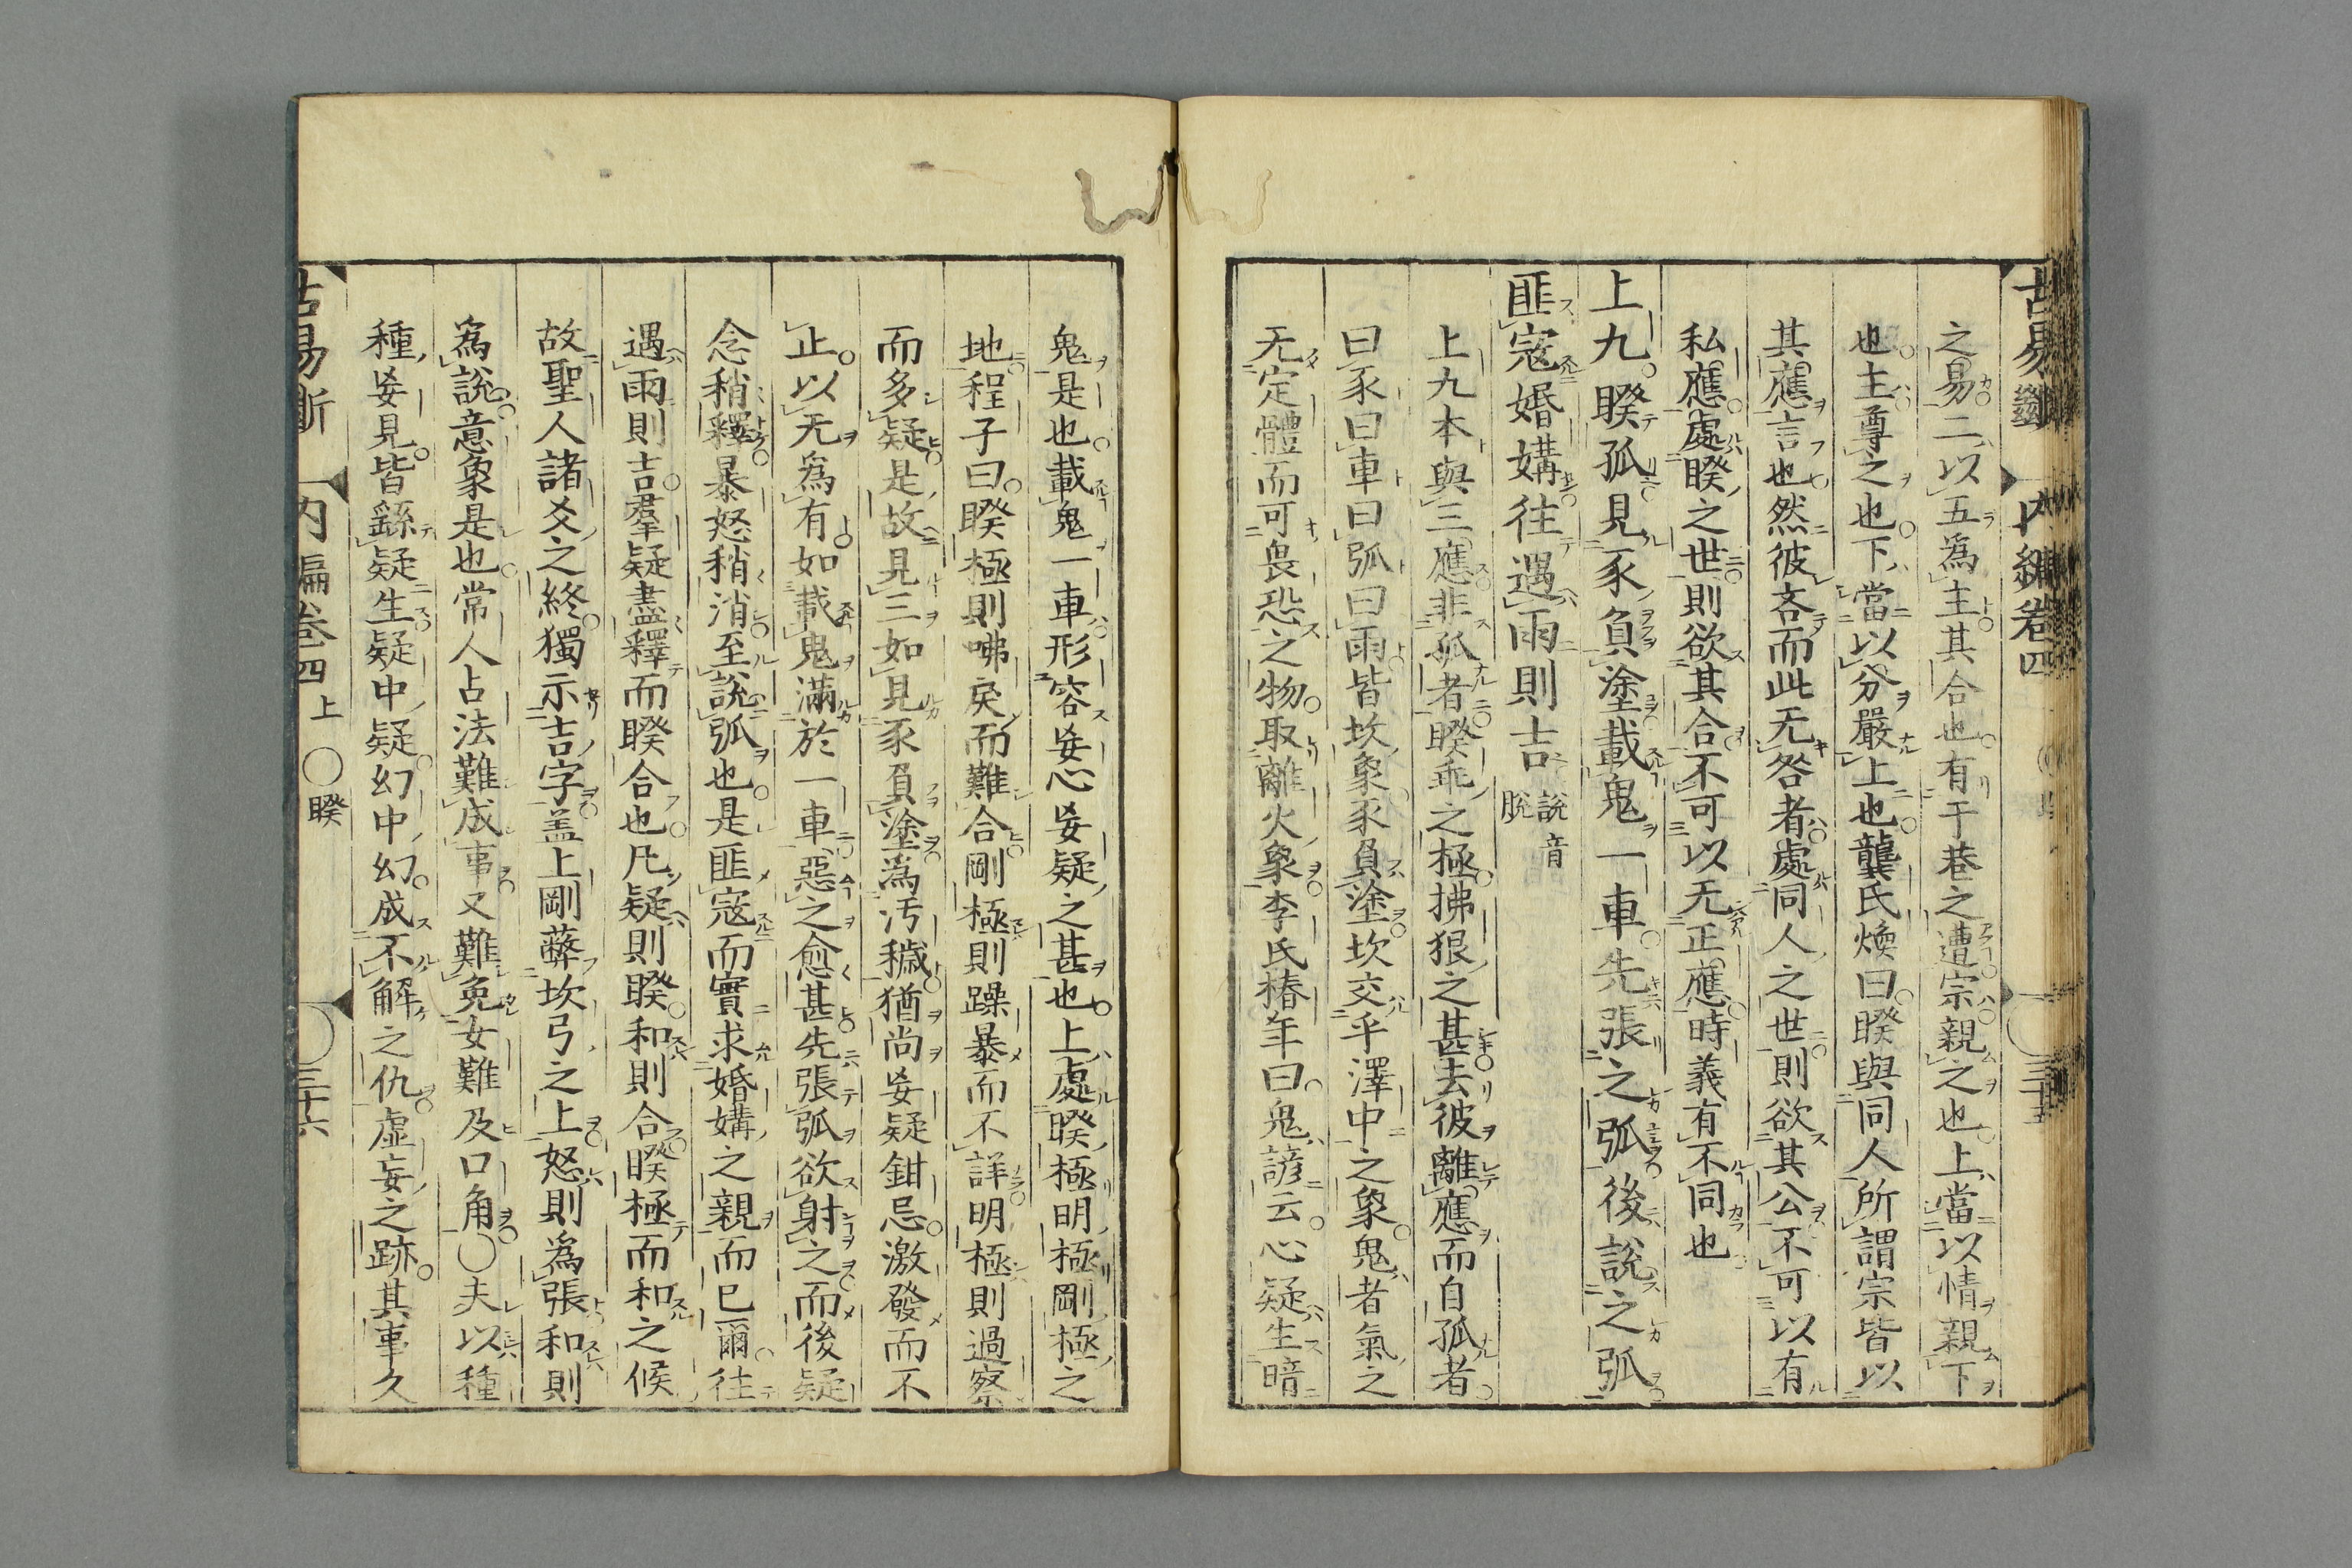 古易斷 內編卷四
之易二以五爲主其合也有于巷之遭宗親之也上當以情親下
也主尊之也下當以分嚴上也龔氏煥曰睽與同人所謂宗皆以
其應言也然彼吝而此无咎者處同人之世則欲其公不可以有
私應處睽之世則欲其合不可以无正應時義有不同也
上九睽孤見豕負塗載鬼一車先張之弧後說之弧
匪寇婚媾往遇雨則吉 說音脫
上九本與三應非孤者睽乖之極拂狠之甚去彼離應而自孤者
曰豕曰車曰弧曰雨皆坎象豕負塗坎交乎澤中之象鬼者氣之
无定體而可畏恐之物取離火象李氏椿年曰鬼諺云心疑生暗
鬼是也載鬼一車形容妄心妄疑之甚也上處睽極明極剛極之
地程子曰睽極則咈戾而難合剛極則躁暴而不詳明極則過察
而多疑是故見三如見豕負塗爲汚穢猶尚妄疑鉗忌激發而不
止以无爲有如載鬼滿於一車惡之愈甚先張弧欲射之而後疑
念稍釋暴怒稍消至說弧也是匪寇而實求婚媾之親而已爾往
遇雨則吉羣疑盡釋而睽合也凡疑則睽和則合睽極而和之候
故聖人諸爻之終獨示吉字盖上剛蔽坎弓之上怒則爲張和則
爲說意象是也常人占法難成事又難免女難及口角○夫以種
種妄見皆繇疑生疑中疑幻中幻成不解之仇虛妄之跡其事久
古易斷 內編卷四上 ○睽 三十六